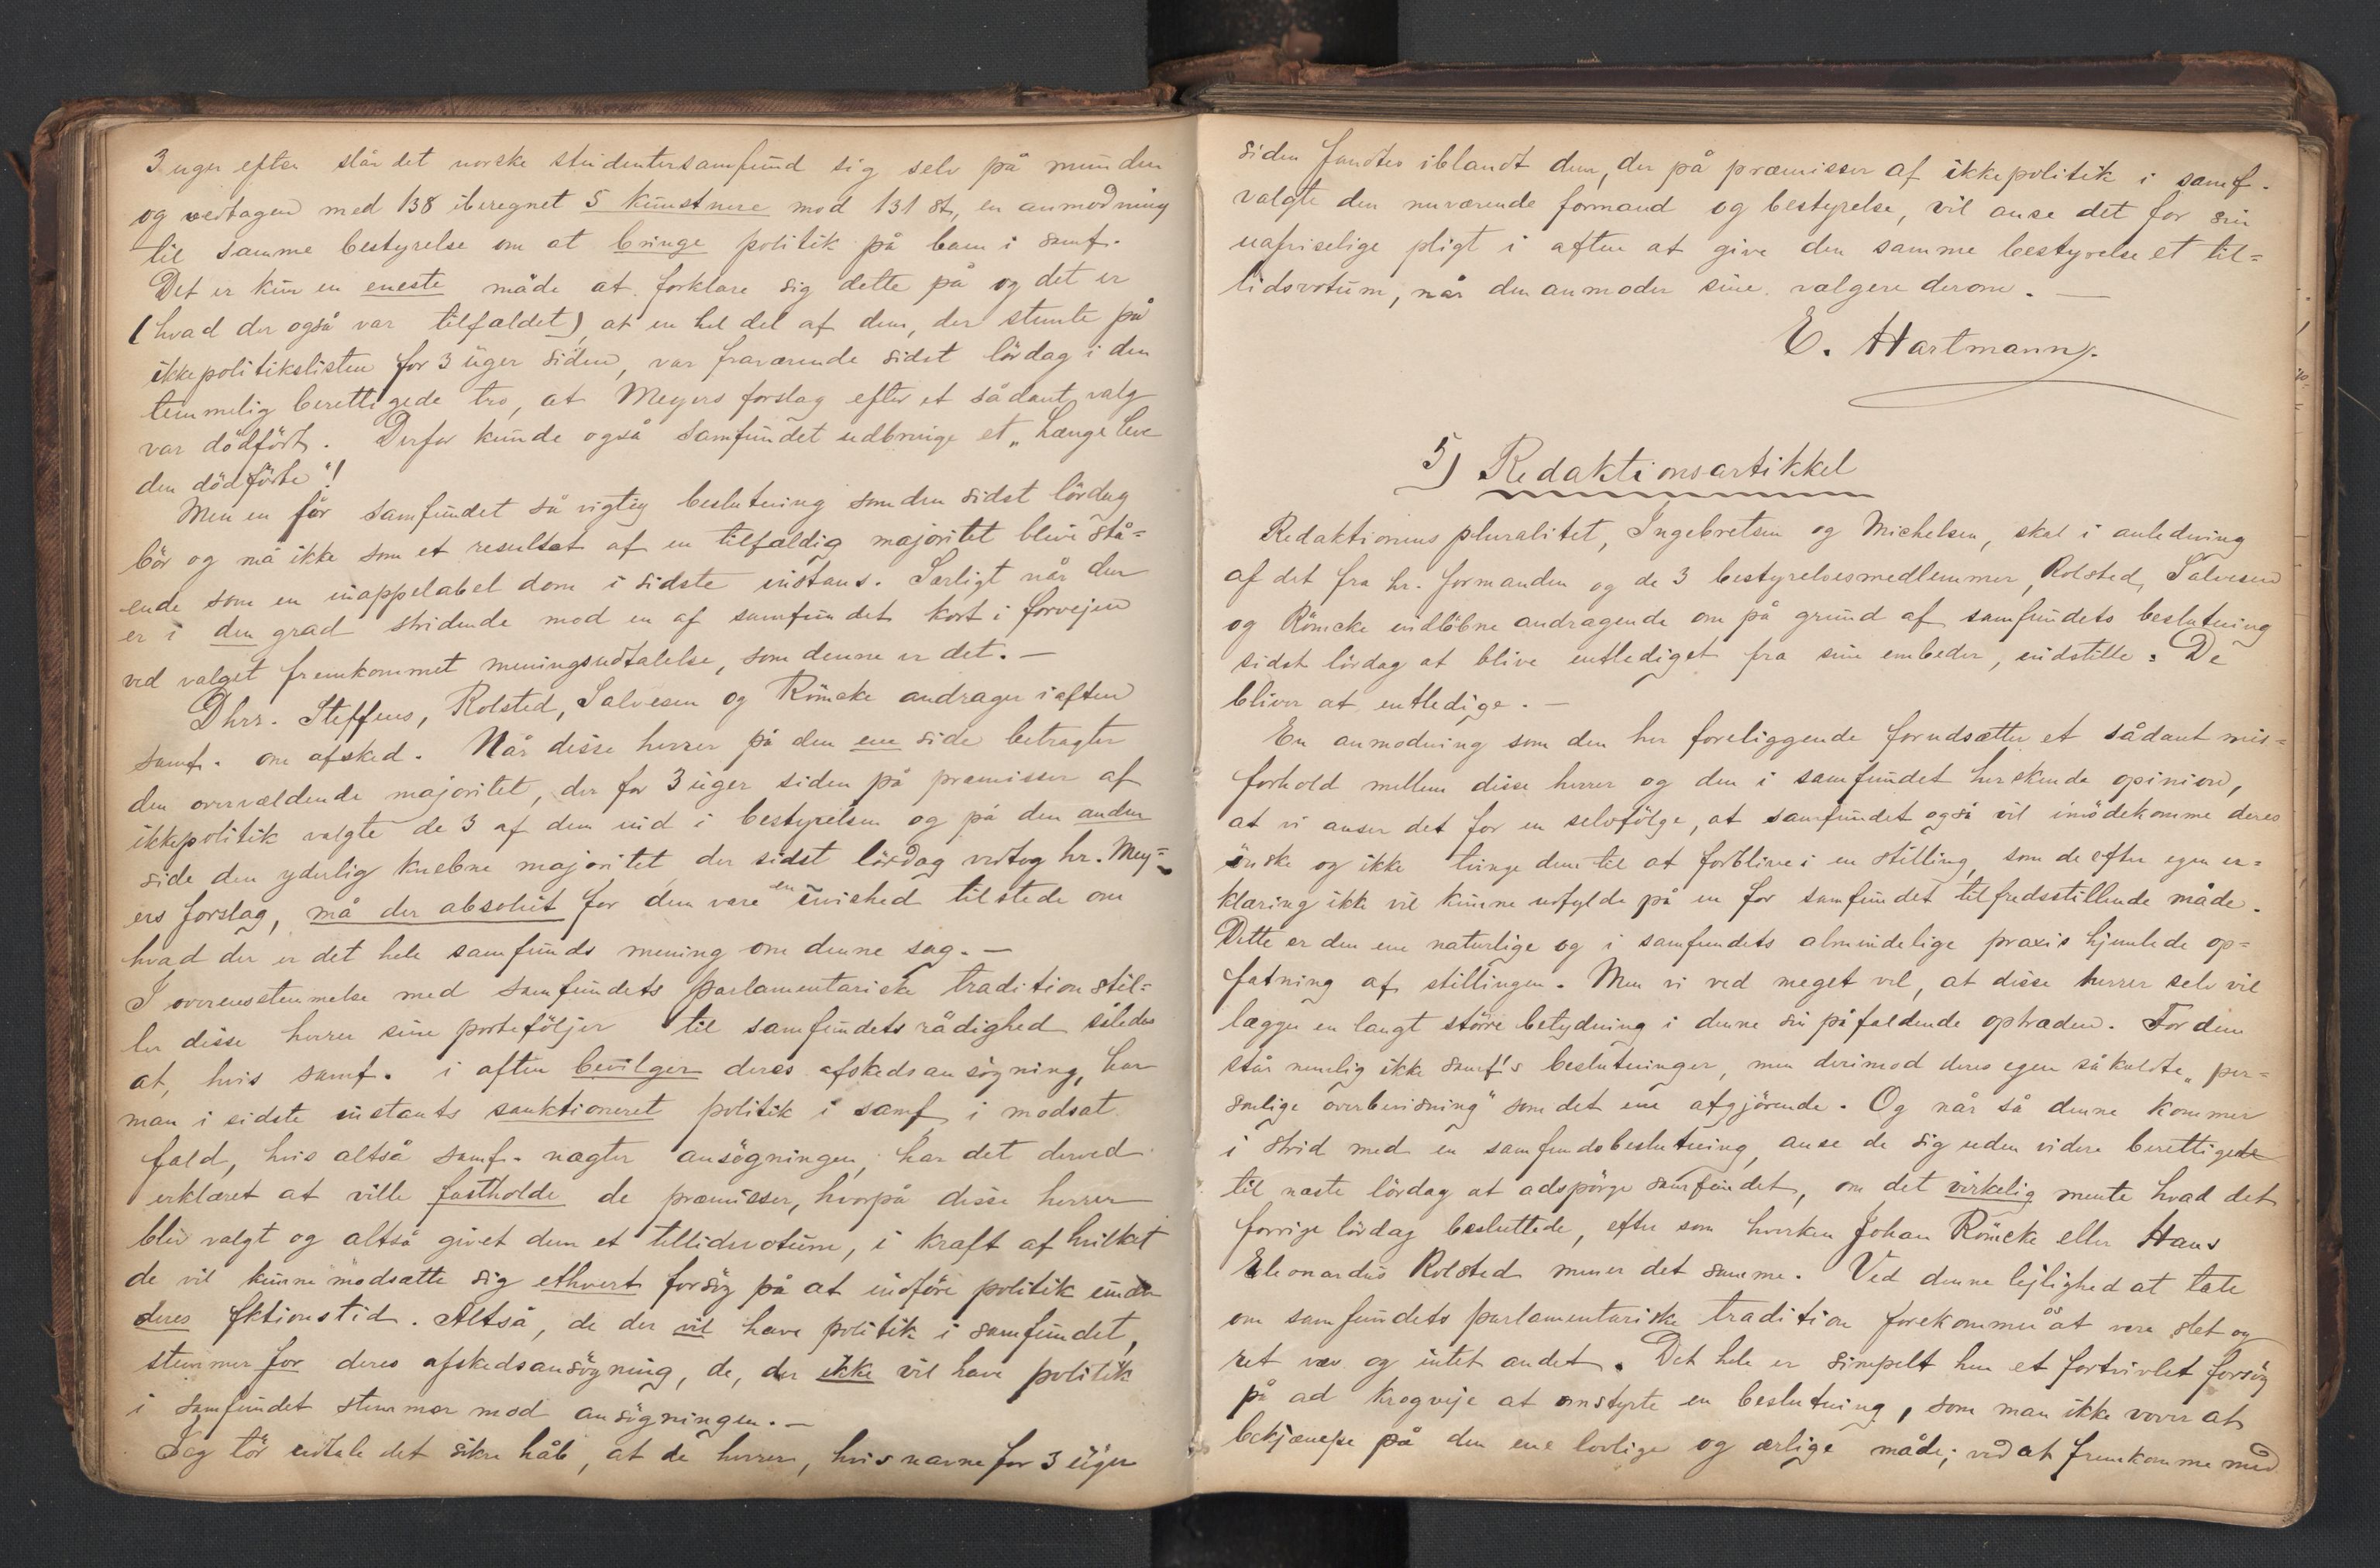 3 uger efter slår det norske studentersamfund sig selv på munden
og vedtager med 138 iberegnet 5 kunstnere mod 131 st, en anmodning
til samme bestyrelse om at bringe politik på bane i samf.
Det er kun en eneste måde at forklare sig dette på og det er
(hvad der også var tilfældet), at en hel del af dem, der stemte på
ikkepolitikslisten for 3 uger siden, var fraværende sidst lördag i den
temmelig berettigede tro, at Meyers forslag efter et sådant valg
var dödfört. Derfor kunde også samfundet udbringe et „Længe leve
den dödförte"!
Men en for samfundet så vigtig beslutning som den sidst lördag
bör og må ikke som et resultat af en tilfældig majoritet blive stå-
ende som en inappelabel dom i sidste instans. Særligt når den
er i den grad stridende mod en af samfundet kort i forvejen
ved valget fremkommet meningsudtalelse, som denne er det. —
Dhrr. Steffens, Rolsted, Salvesen og Römcke andrager i aften
samf. om afsked. Når disse herrer på den ene side betragter
den overvældende majoritet, der for 3 uger siden på præmisser af
ikkepolitik valgte de 3 af dem ind i bestyrelsen og på den anden
side den yderlig knebne majoritet der sidst lördag vedtog hr. Mey-
ers forslag, må der absolut for dem være en uvished tilstede om
hvad der er det hele samfunds mening om denne sag. —
I overensstemmelse med samfundets parlamentariske tradition stil-
ler disse herrer sine porteföljer til samfundets rådighed således
at, hvis samf. i aften bevilger deres afskedsansögning, har
man i sidste instants sanktioneret politik i samf, i modsat
fald, hvis altså samf. nægter ansögningen, har det derved
erklæret at ville fastholde de præmisser, hvorpå disse herrer
blev valgt og altså givet dem et tillidsvotum, i kraft af hvilket
de vil kunne modsætte sig ethvert forsög på at indföre politik under
deres fktionstid. Altså, de der vil have politik i samfundet,
stemmer for deres afskedsansögning, de, der ikke vil have politik
i samfundet stemmer mod ansögningen. —
Jeg tör udtale det sikre håb, at de herrer, hvis navne for 3 uger
siden fandtes iblandt dem, der på præmisser af ikkepolitik i samf.
valgte den nuværende formand og bestyrelse, vil anse det for sin
uafviselige pligt i aften at give den samme bestyrelse et til-
lidsvotum, når den anmoder sine vælgere derom. —
E. Hartmann.
5) Redaktionsartikkel
Redaktionens pluralitet, Ingebretsen og Michelsen, skal i anledning
af det fra hr. formanden og de 3 bestyrelsesmedlemmer, Rolsted, Salvesen
og Römcke indlöbne andragende om på grund af samfundets beslutning
sidst lördag at blive entlediget fra sine embeder, indstille: De
bliver at entledige. —
En anmodning som den her foreliggende forudsætter et sådant mis-
forhold mellem disse herrer og den i samfundet herskende opinion,
at vi anser det for en selvfölge, at samfundet også vil imödekomme deres
önske og ikke tvinge dem til at forblive i en stilling, som de efter egen er-
klæring ikke vil kunne udfylde på en for samfundet tilfredsstillende måde.
Dette er den ene naturlige og i samfundets almindelige praxis hjemlede op-
fatning af stillingen. Men vi ved meget vel, at disse herrer selv vil
lægge en langt större betydning i denne sin påfaldende optræden. For dem
står nemlig ikke samf's beslutninger, men derimod deres egen såkaldte „per-
sonlige overbevisning" som det ene afgjörende. Og når så denne kommer
i strid med en samfundsbeslutning, anse de sig uden videre berettigede
til næste lördag at adspörge samfundet, om det virkelig mente hvad det
forrige lördag besluttede, efter som hverken Johan Römcke eller Hans
Eleonardus Rolsted mener det samme. Ved denne lejlighed at tale
om samfundets parlamentariske tradition forekommer os at være slet og
ret væv og intet andet. Det hele er simpelt hen et fortvivlet forsög
på ad krogveje at omstyrte en beslutning, som man ikke vover at
bekjæmpe på den ene lovlige og ærlige måde; ved at fremkomme med